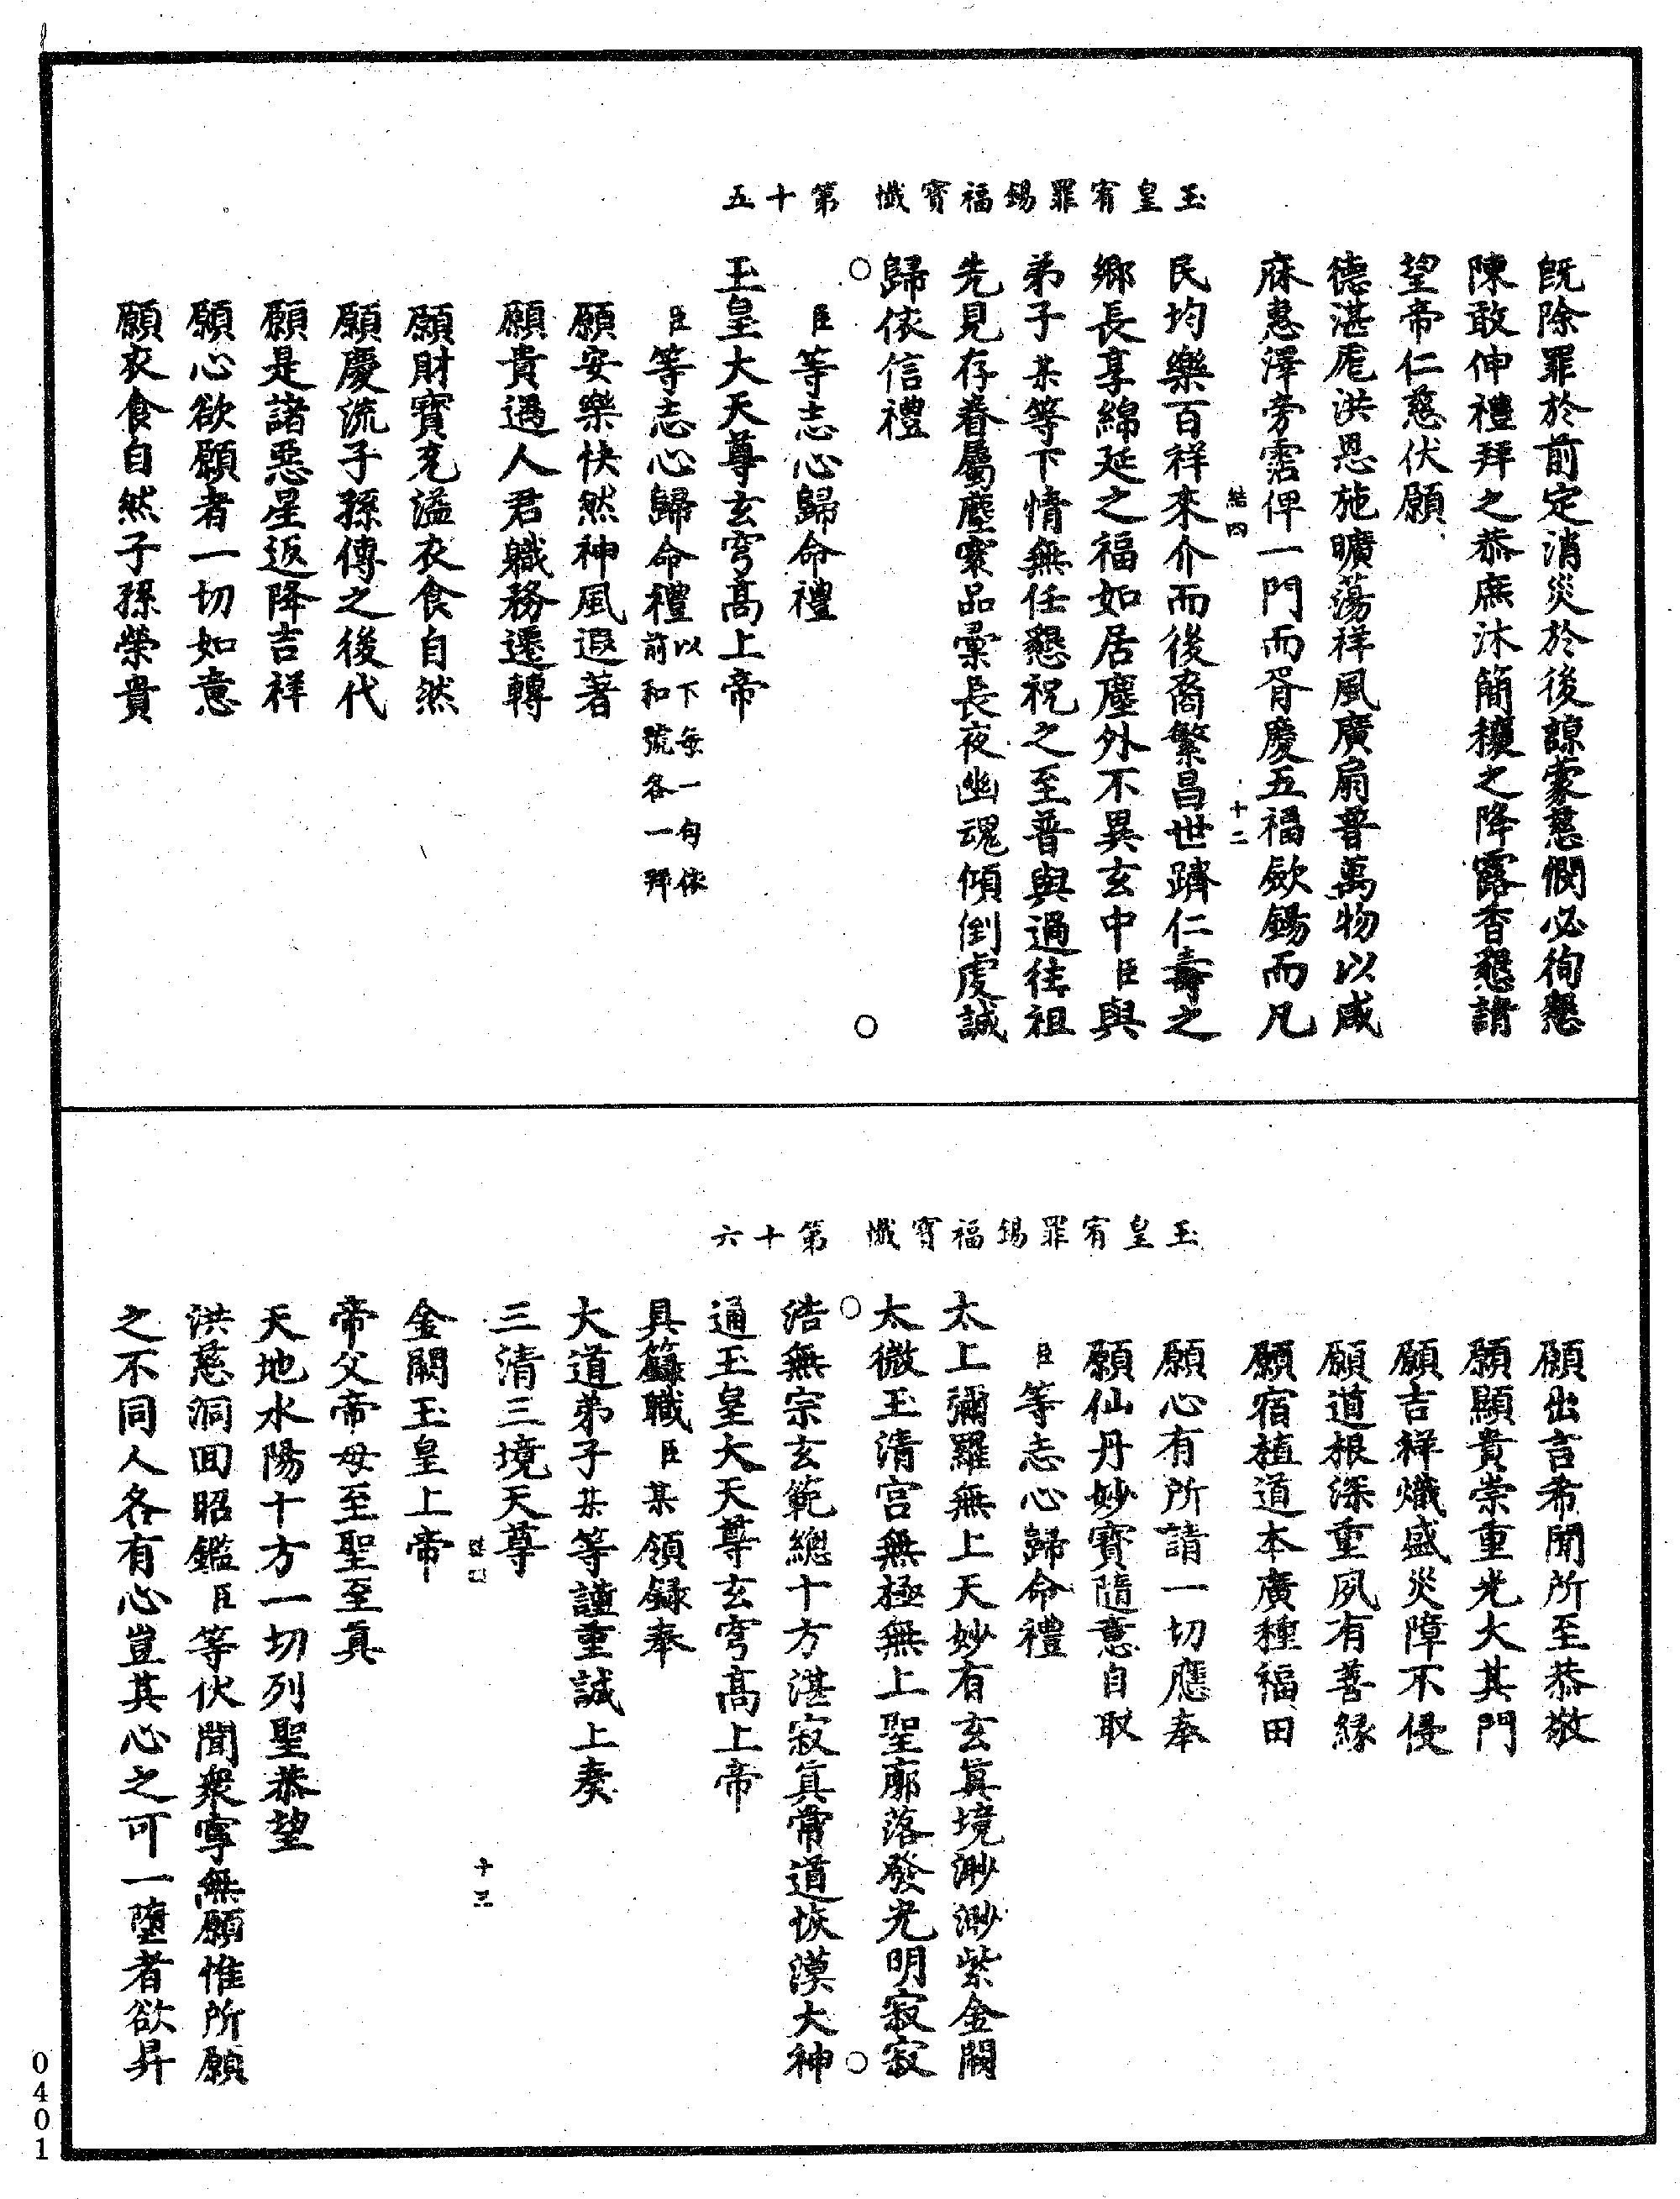 玉皇宥罪錫福寶懺　第十五
既除罪於前定消災於後諒蒙慈憫必徇懇
陳敢伸禮拜之恭庶沐簡穰之降露香懇請
望帝仁慈伏願
德湛厖洪恩施曠蕩祥風廣扇普萬物以咸
庥惠澤旁霑俾一門而胥慶五福歛錫而凡
結四　十二
民均樂百祥來介而後裔繁昌世躋仁壽之
鄉長享綿延之福如居塵外不異玄中臣與
弟子某等下情無任懇祝之至普與過往祖
先見存眷屬塵寰品彙長夜幽魂傾倒虔誠
歸依信禮
臣等志心歸命禮
玉皇大天尊玄穹高上帝
臣等志心歸命禮以下每一句依前和號各一拜
願安樂快然神風遐著
願貴過人君職務遷轉
願財寶充溢衣食自然
願慶流子孫傳之後代
願是諸惡星返降吉祥
願心欲願者一切如意
願衣食自然子孫榮貴
玉皇宥罪錫福寶懺　第十六
願出言希聞所至恭敬
願顯貴崇重光大其門
願吉祥熾盛災障不侵
願道根深重夙有善緣
願宿植道本廣種福田
願心有所請一切應奉
願仙丹妙寶隨意自取
臣等志心歸命禮
太上彌羅無上天妙有玄眞境渺渺紫金闕
太微玉清宮無極無上聖廓落發光明寂寂
浩無宗玄範總十方湛寂眞常道恢漠大神
通玉皇大天尊玄穹高上帝
具籙職臣某領錄奉
大道弟子某等謹重誠上奏
三清三境天尊
十三
金闕玉皇上帝
帝父帝母至聖至眞
天地水陽十方一切列聖恭望
洪慈洞回昭鑑臣等伏聞衆寧無願惟所願
之不同人各有心豈其心之可一墮者欲昇
0401